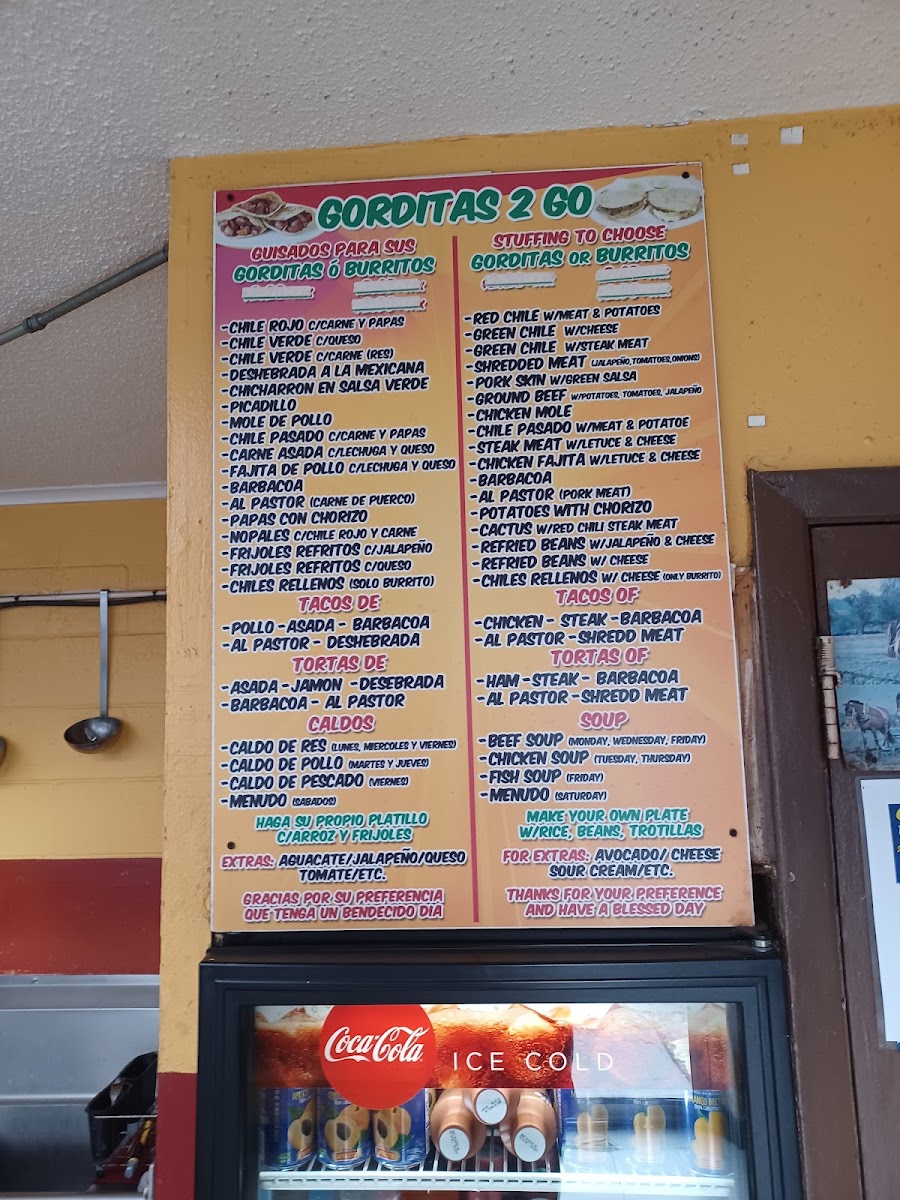 GORDITAS 2 GO
GUISADOS PARA SUS
GORDITAS ó BURRITOS
-CHILE ROJO C/CARNE Y PAPAS
-CHILE VERDE C/QUESO
-CHILE VERDE C/CARNE (RES)
-DESHEBRADA A LA MEXICANA
-CHICHARRON EN SALSA VERDE
-PICADILLO
-MOLE DE POLLO
-CHILE PASADO C/CARNE Y PAPAS
-CARNE ASADA C/LECHUGA Y QUESO
-FAJITA DE POLLO C/LECHUGA Y QUESO
-BARBACOA
-AL PASTOR (CARNE DE PUERCO)
-PAPAS CON CHORIZO
-NOPALES C/CHILE ROJO Y CARNE
-FRIJOLES REFRITOS C/JALAPEÑO
-FRIJOLES REFRITOS C/QUESO
-CHILES RELLENOS (SOLO BURRITO)
TACOS DE
-POLLO -ASADA - BARBACOA
-AL PASTOR - DESHEBRADA
TORTAS DE
-ASADA -JAMON -DESEBRADA
-BARBACOA - AL PASTOR
CALDOS
-CALDO DE RES (LUNES, MIERCOLES Y VIERNES)
-CALDO DE POLLO (MARTES Y JUEVES)
-CALDO DE PESCADO (VIERNES)
-MENUDO (SABADOS)
HAGA SU PROPIO PLATILLO
C/ARROZ Y FRIJOLES
EXTRAS: AGUACATE/JALAPEÑO/QUESO
TOMATE/ETC.
GRACIAS POR SU PREFERENCIA
QUE TENGA UN BENDECIDO DIA
STUFFING TO CHOOSE
GORDITAS OR BURRITOS
-RED CHILE W/MEAT & POTATOES
-GREEN CHILE W/CHEESE
-GREEN CHILE W/STEAK MEAT
-SHREDDED MEAT (JALAPEÑO,TOMATOES,ONIONS)
-PORK SKIN W/GREEN SALSA
-GROUND BEEF W/POTATOES, TOMATOES, JALAPEÑO
-CHICKEN MOLE
-CHILE PASADO W/MEAT & POTATOE
-STEAK MEAT W/LETUCE & CHEESE
-CHICKEN FAJITA W/LETUCE & CHEESE
-BARBACOA
-AL PASTOR (PORK MEAT)
-POTATOES WITH CHORIZO
-CACTUS W/RED CHILI STEAK MEAT
-REFRIED BEANS W/JALAPEÑO & CHEESE
-REFRIED BEANS W/ CHEESE
-CHILES RELLENOS W/ CHEESE (ONLY BURRITO)
TACOS OF
-CHICKEN - STEAK -BARBACOA
-AL PASTOR -SHREDD MEAT
TORTAS OF
-HAM -STEAK - BARBACOA
-AL PASTOR -SHREDD MEAT
SOUP
-BEEF SOUP (MONDAY, WEDNESDAY, FRIDAY)
-CHICKEN SOUP (TUESDAY, THURSDAY)
-FISH SOUP (FRIDAY)
-MENUDO (SATURDAY)
MAKE YOUR OWN PLATE
W/RICE, BEANS, TROTILLAS
FOR EXTRAS: AVOCADO/ CHEESE
SOUR CREAM/ETC.
THANKS FOR YOUR PREFERENCE
AND HAVE A BLESSED DAY
Coca-Cola ICE COLD